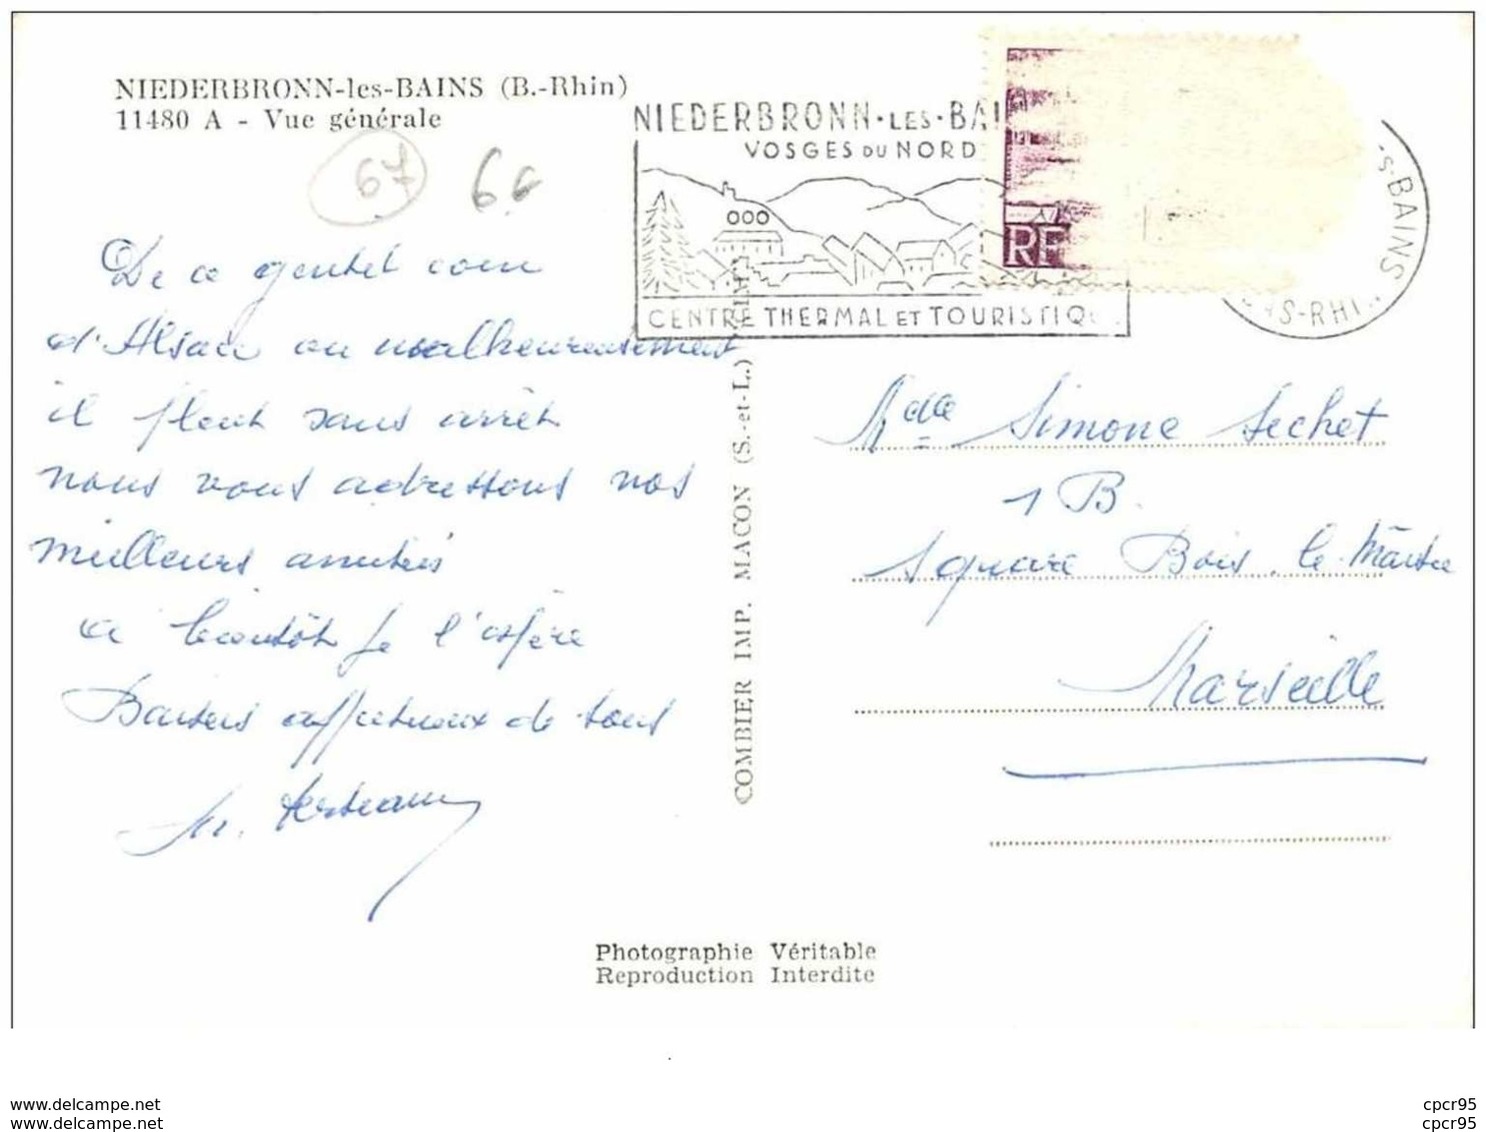 NIEDERBRONN-les-BAINS (B.-Rhin)
11480 A - Vue générale
67
66
NIEDERBRONN·LES·BAI
VOSGES DU NORD
CENTRE THERMAL ET TOURISTIQ
RF
S-BAINS
AS-RHI
De ce gentil coin
d'Alsace ou malheureusement
il pleut sans arrêt
nous vous adressons nos
meilleurs amitiés
a bientôt je l'espère
Baisers affectueux de tous
COMBIER IMP. MACON (S.-et-L.)
Mde Simone Sechet
1 B.
square Bois. le. Maitre
Marseille
Photographie Véritable
Reproduction Interdite
www.delcampe.net
www.delcampe.net
cpcr95
cpcr95